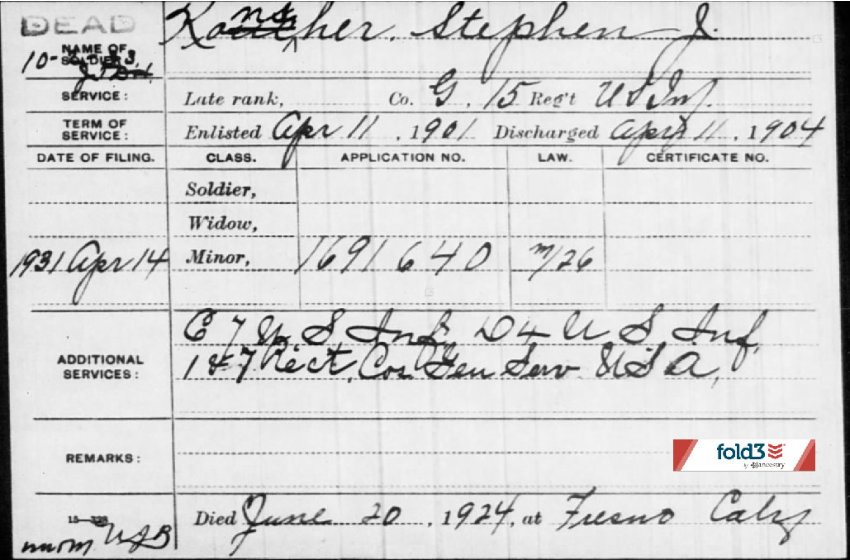 DEAD
NAME OF SOLDIER:
Kanscher, Stephen J.
10-
SERVICE: Late rank, Co. G, 15 Reg't U S Inf.
TERM OF SERVICE: Enlisted Apr 11, 1901 Discharged Apr 11, 1904
DATE OF FILING. CLASS. APPLICATION NO. LAW. CERTIFICATE NO.
Soldier,
Widow,
1931 Apr 14 Minor, 1691640 m/26
ADDITIONAL SERVICES:
C 7 U S Inf, D 4 U S Inf,
1 & 7 Rect. Cos Gen Serv U S A,
REMARKS:
fold3
by ancestry
Died June 20, 1924, at Fresno Calif